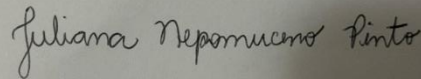 Juliana Nepomuceno Pinto